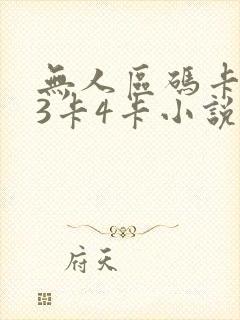 無人區碼卡
3卡4卡小說
府天